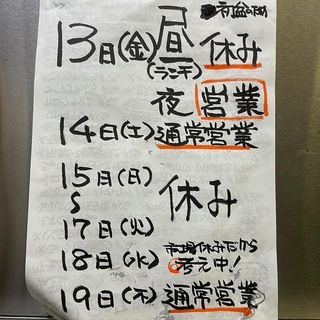 初盆のため
13日(金)昼休み
(ランチ)
夜営業
14日(土)通常営業
15日(日)
〜
17日(火)
休み
18日(水)市場休みだから
考え中!
19日(木)通常営業